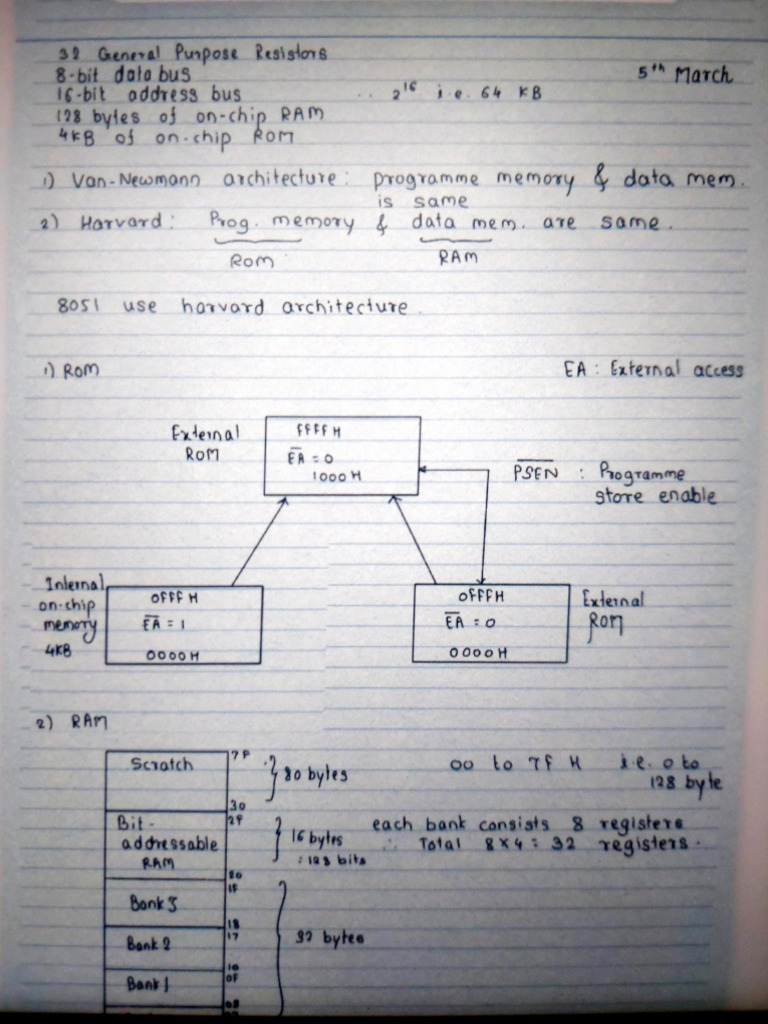 32 General Purpose Resistors
8-bit data bus
5th March
16-bit address bus ... 2^16 i.e. 64 KB
128 bytes of on-chip RAM
4KB of on-chip ROM
1) Van-Newmann architecture: programme memory & data mem.
is same
2) Harvard: Prog. memory & data mem. are same.
ROM RAM
8051 use harvard architecture.
1) ROM
EA : External access
External
ROM
FFFF H
E̅A̅ = 0
1000 H
P̅S̅E̅N̅ : Programme
store enable
Internal
on-chip
memory
4KB
0FFF H
E̅A̅ = 1
0000 H
0FFFH
E̅A̅ = 0
0000 H
External
ROM
2) RAM
Scratch
7F
30
80 bytes
00 to 7F H i.e. 0 to
128 byte
Bit-
addressable
RAM
2F
20
16 bytes
: 128 bits
each bank consists 8 registers
∴ Total 8×4 = 32 registers.
Bank 3
1F
18
Bank 2
17
10
32 bytes
Bank 1
0F
08